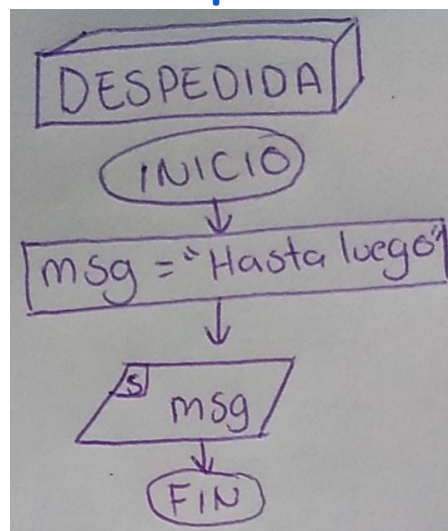 DESPEDIDA
INICIO
msg = "Hasta luego"
S
msg
FIN